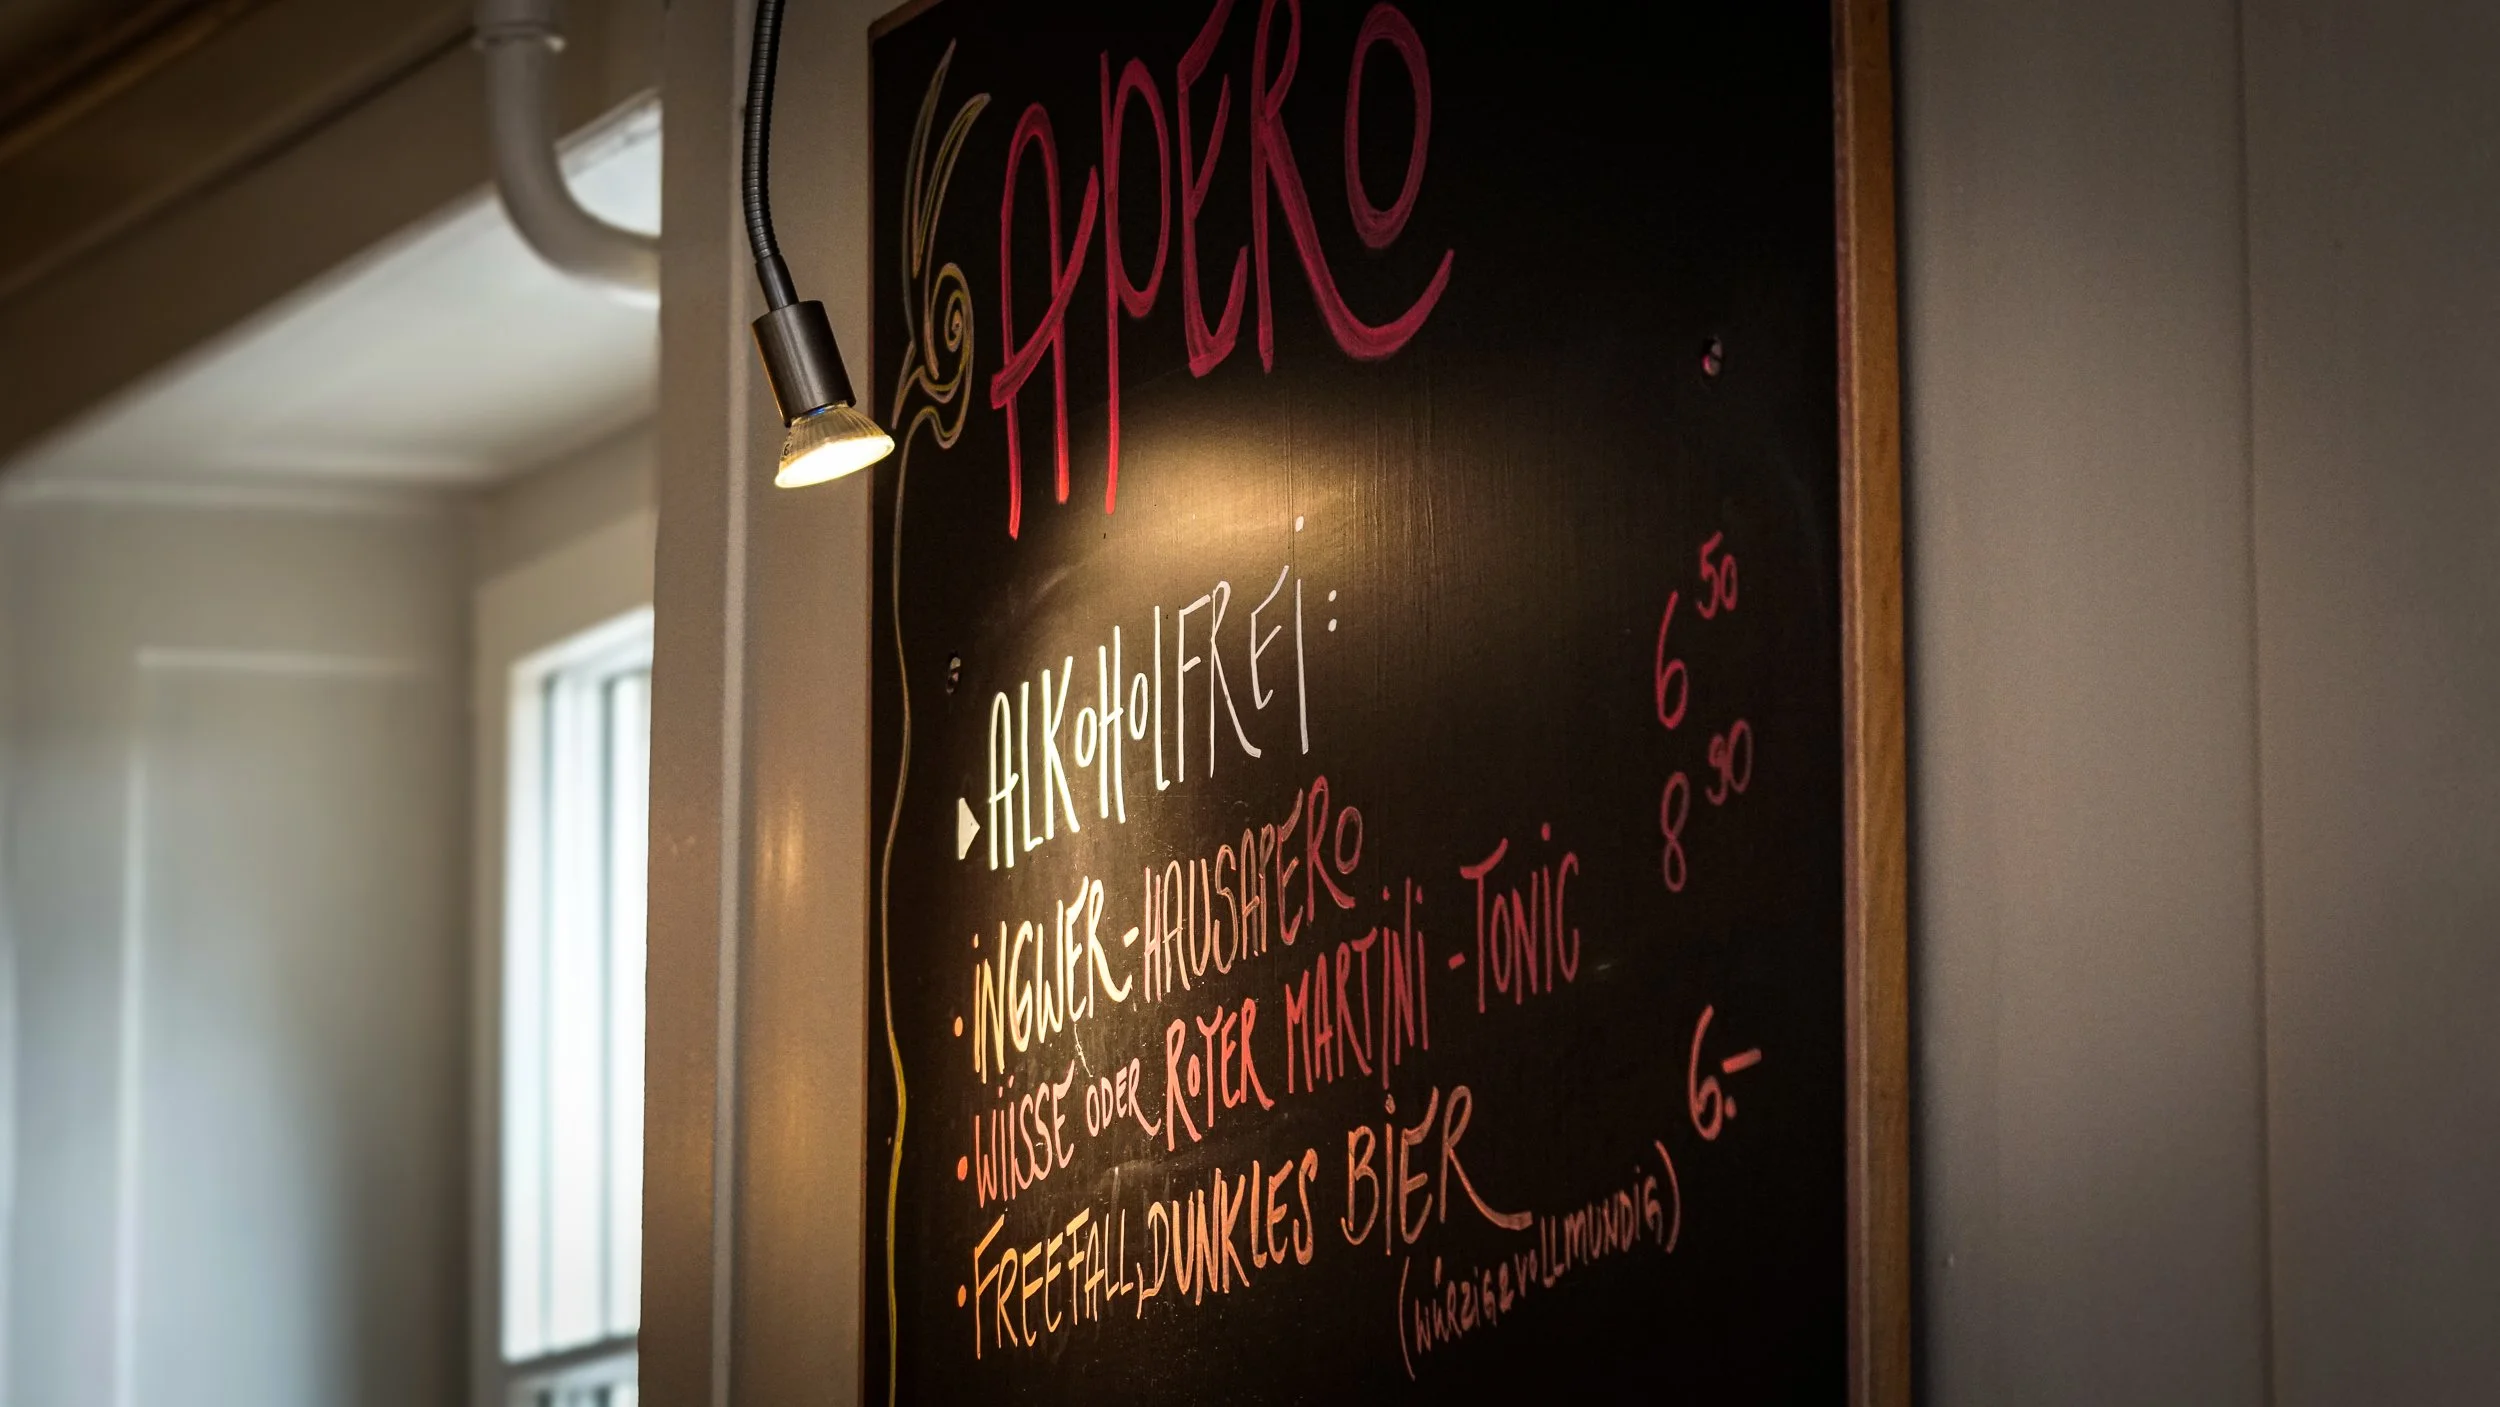 APERO
ALKOHOLFREI:
• INGWER-HAUSAPERO 6 50
• WIISSE ODER ROTER MARTINI-TONIC 8 90
• FREEFALL, DUNKLES BIER 6.-
(WÜRZIG & VOLLMUNDIG)